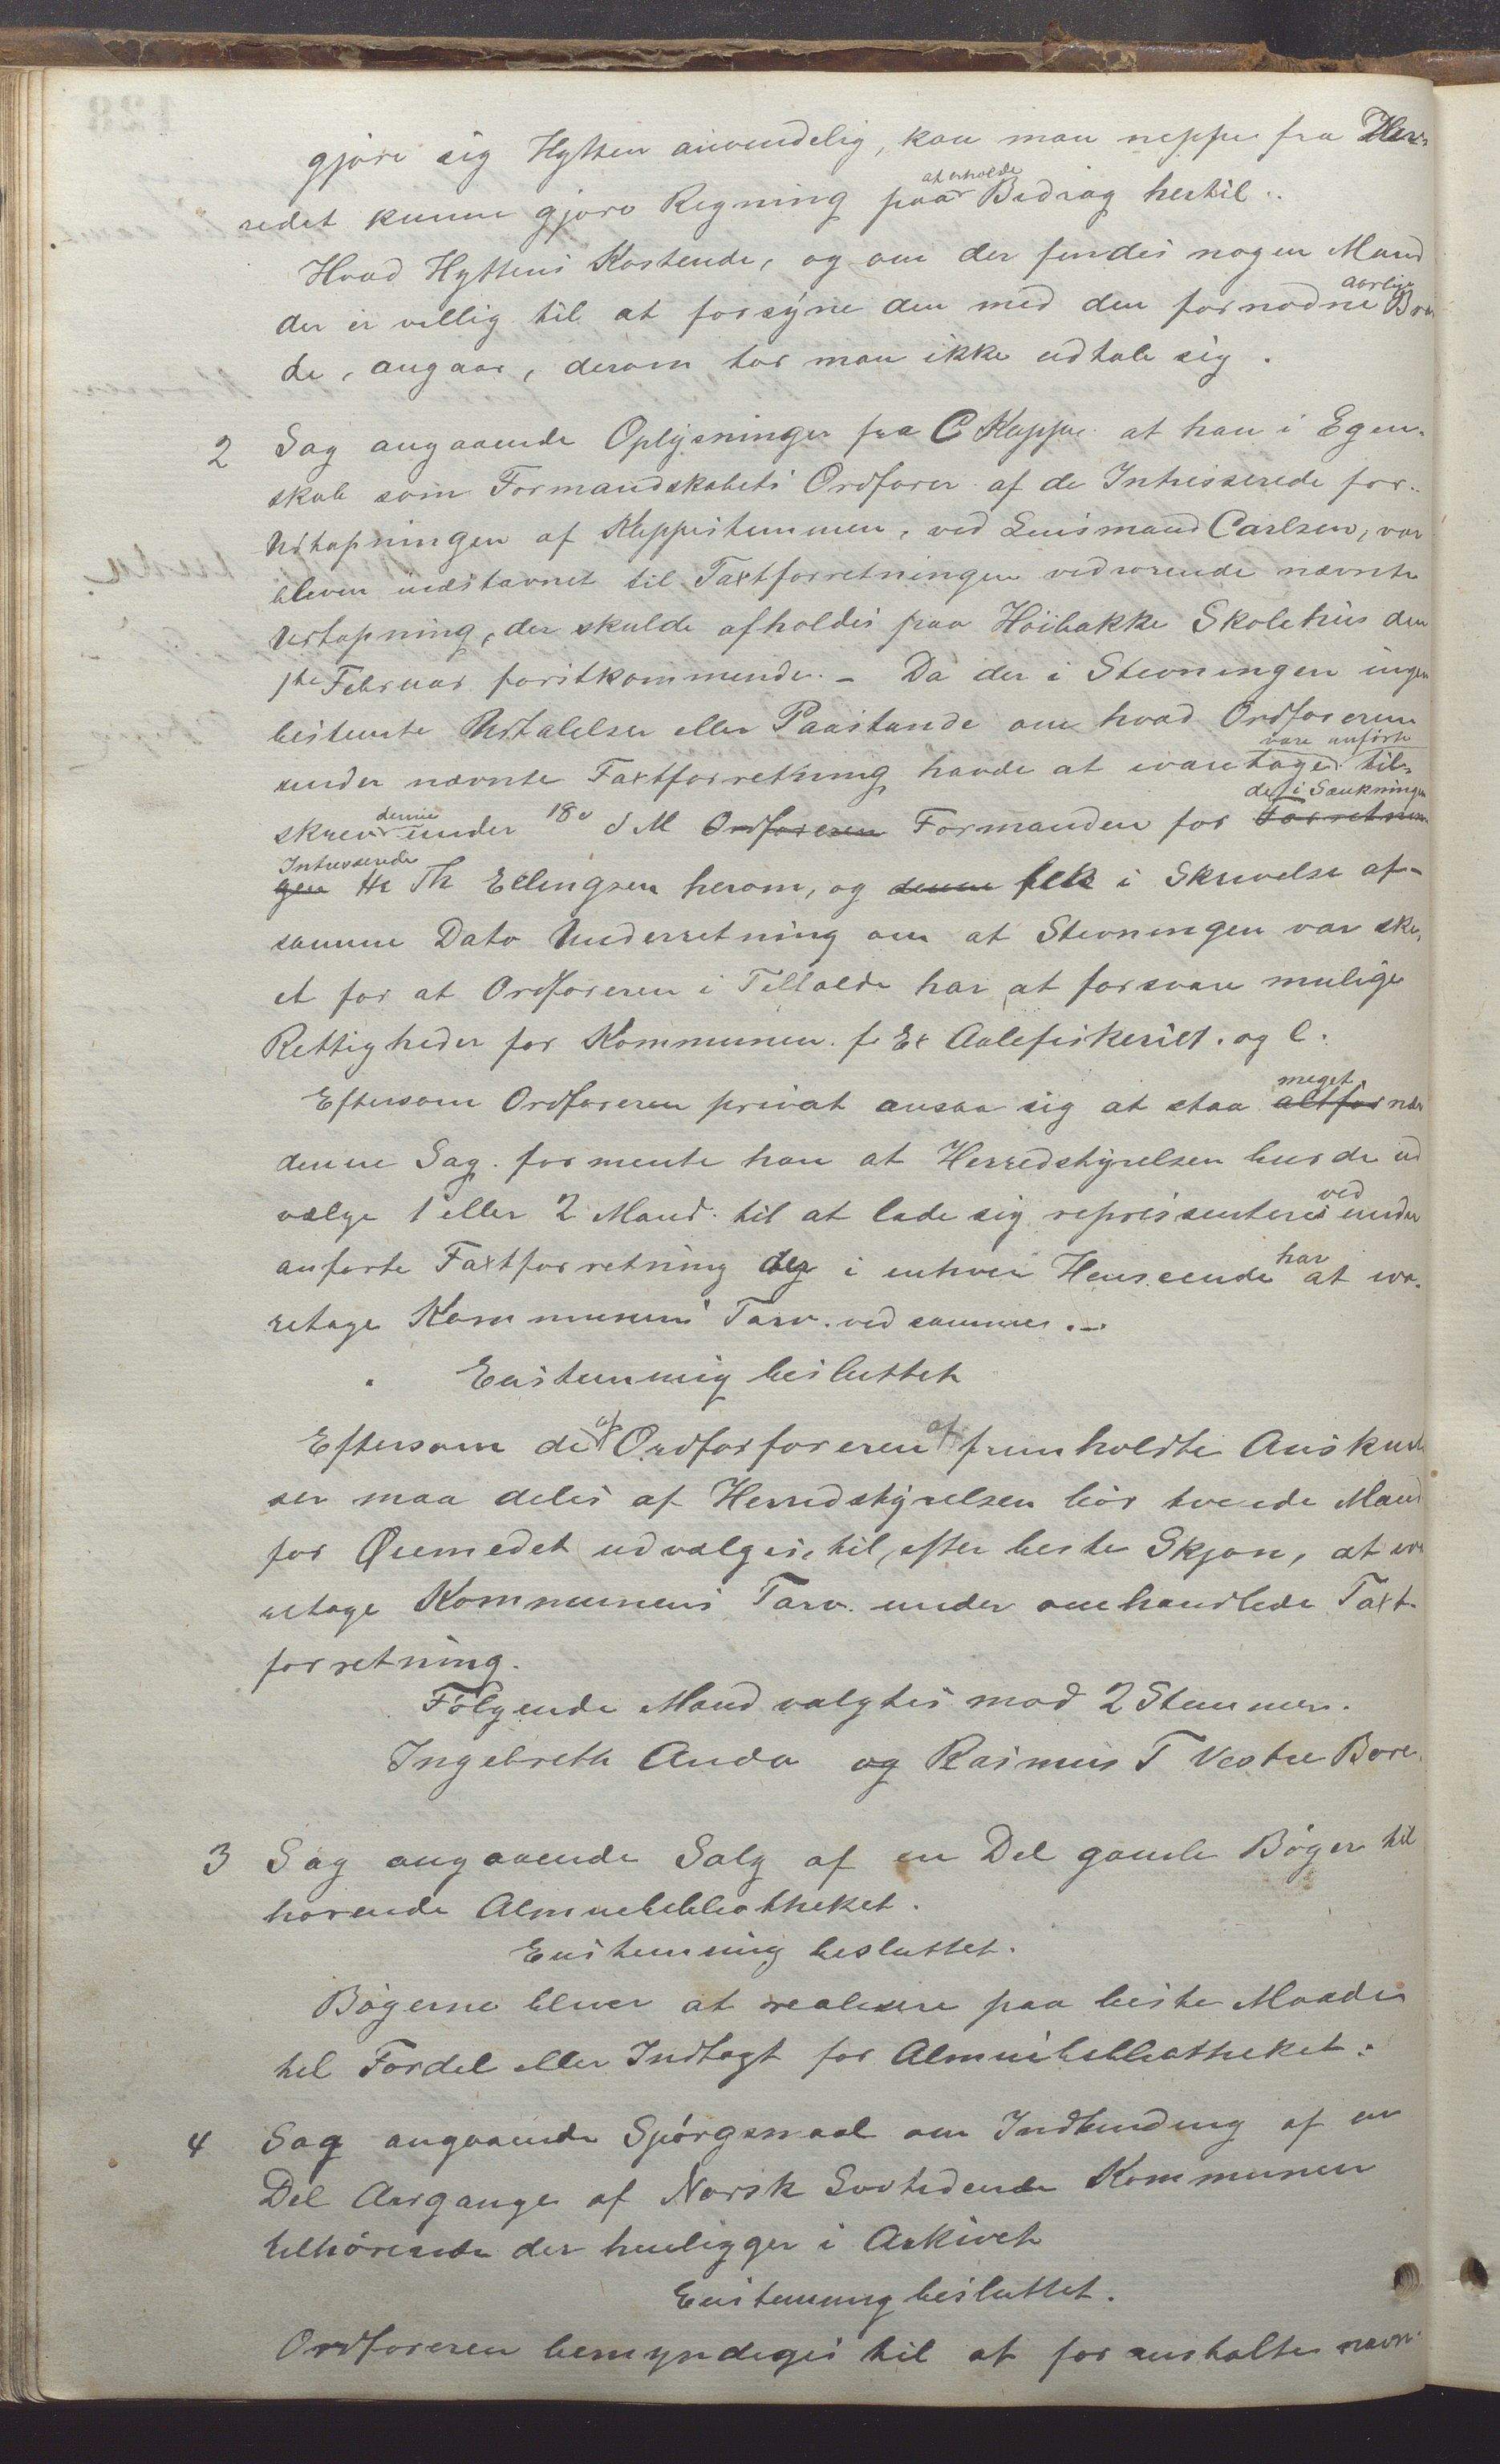 gjøre sig Hytten anvendelig, kan man neppe fra Her-
redet kunne gjøre Regning paa at erholde Bidrag hertil.
Hvad Hyttens Kostende, og om der findes nogen Mand
der er villig til at forsyne den med den fornødne aarlige
de, angaar, derom tør man ikke udtale sig.
2 Sag angaaende Oplysninger fra C Kleppe at han i Egen-
skab som Formandskabets Ordfører af de Intresserede for
Udtapningen af Kleppestemmen, ved Lensmand Carlsen, var
bleven indstævnet til Taxtforretningen vedrørende nævnte
Udtapning, der skulde afholdes paa Høibakke Skolehus den
1ste Februar førstkommende. - Da der i Stevningen ingen
bestemte Udtalelser eller Paastande om hvad Ordføreren
under nævnte Taxtforretning havde at ivaretage vare anførte til-
skrev denne under 18de d M Ordføreren Formanden for Forretnin
gen de i Sænkningen Intresserede Hr Th Ellingsen herom, og denne fik i Skrivelse af
samme Dato Underretning om at Stevningen var ske-
et for at Ordføreren i Tilfælde har at forsvare mulige
Rettigheder for Kommunen f. Ex Aalefiskeriet. og l.
Eftersom Ordføreren privat ansaa sig at staa altfor meget nær
denne Sag formente han at Herredstyrelsen burde ud
vælge 1 eller 2 Mænd til at lade sig repræsentere ved under
anførte Taxtforretning der i enhver Henseende har at iva-
retage Kommunens Tarv ved samme.-
Enstemmig besluttet
Eftersom de af Ordforføreren af fremholdte Anskuel
ser maa deles af Herredstyrelsen bør tvende Mænd
for Øiemedet udvælges, til, efter beste Skjøn, at iva
retage Kommunens Tarv under omhandlede Taxt-
forretning.
Følgende Mænd valgtes mod 2 Stemmer.
Ingebreth Anda og Rasmus T Vestre Bore.
3 Sag angaaende Salg af en Del gamle Bøger til
hørende Almuebibliotheket.
Enstemmig besluttet.
Bøgerne bliver at realisere paa beste Maade
til Fordel eller Indtægt for Almuebibliotheket.
4 Sag angaaende Spørgsmaal om Indbinding af en
Del Aargange af Norsk Lovtidende Kommunen
tilhørende der henligger i Arkivet
Enstemmig besluttet.
Ordføreren bemyndiges til at foranstalte nævn-